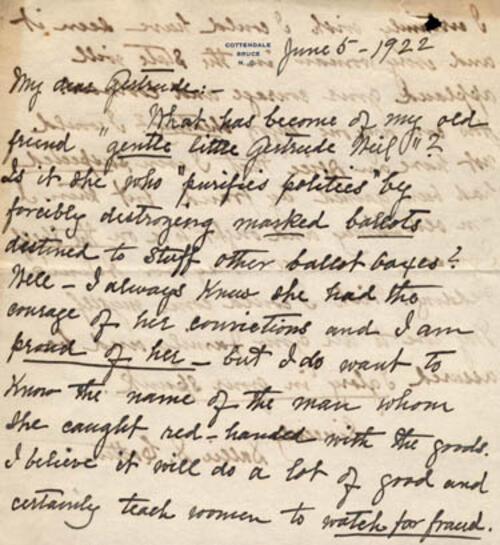 COTTENDALE
BRUCE
N. C.
June 5 - 1922
My dear Gertrude:-
What has become of my old
friend "gentle little Gertrude Weil"?
Is it she who "purifies politics" by
forcibly destroying marked ballots
destined to stuff other ballot boxes?
Well - I always knew she had the
courage of her convictions and I am
proud of her - but I do want to
know the name of the man whom
she caught red-handed with the goods.
I believe it will do a lot of good and
certainly teach women to watch for fraud.